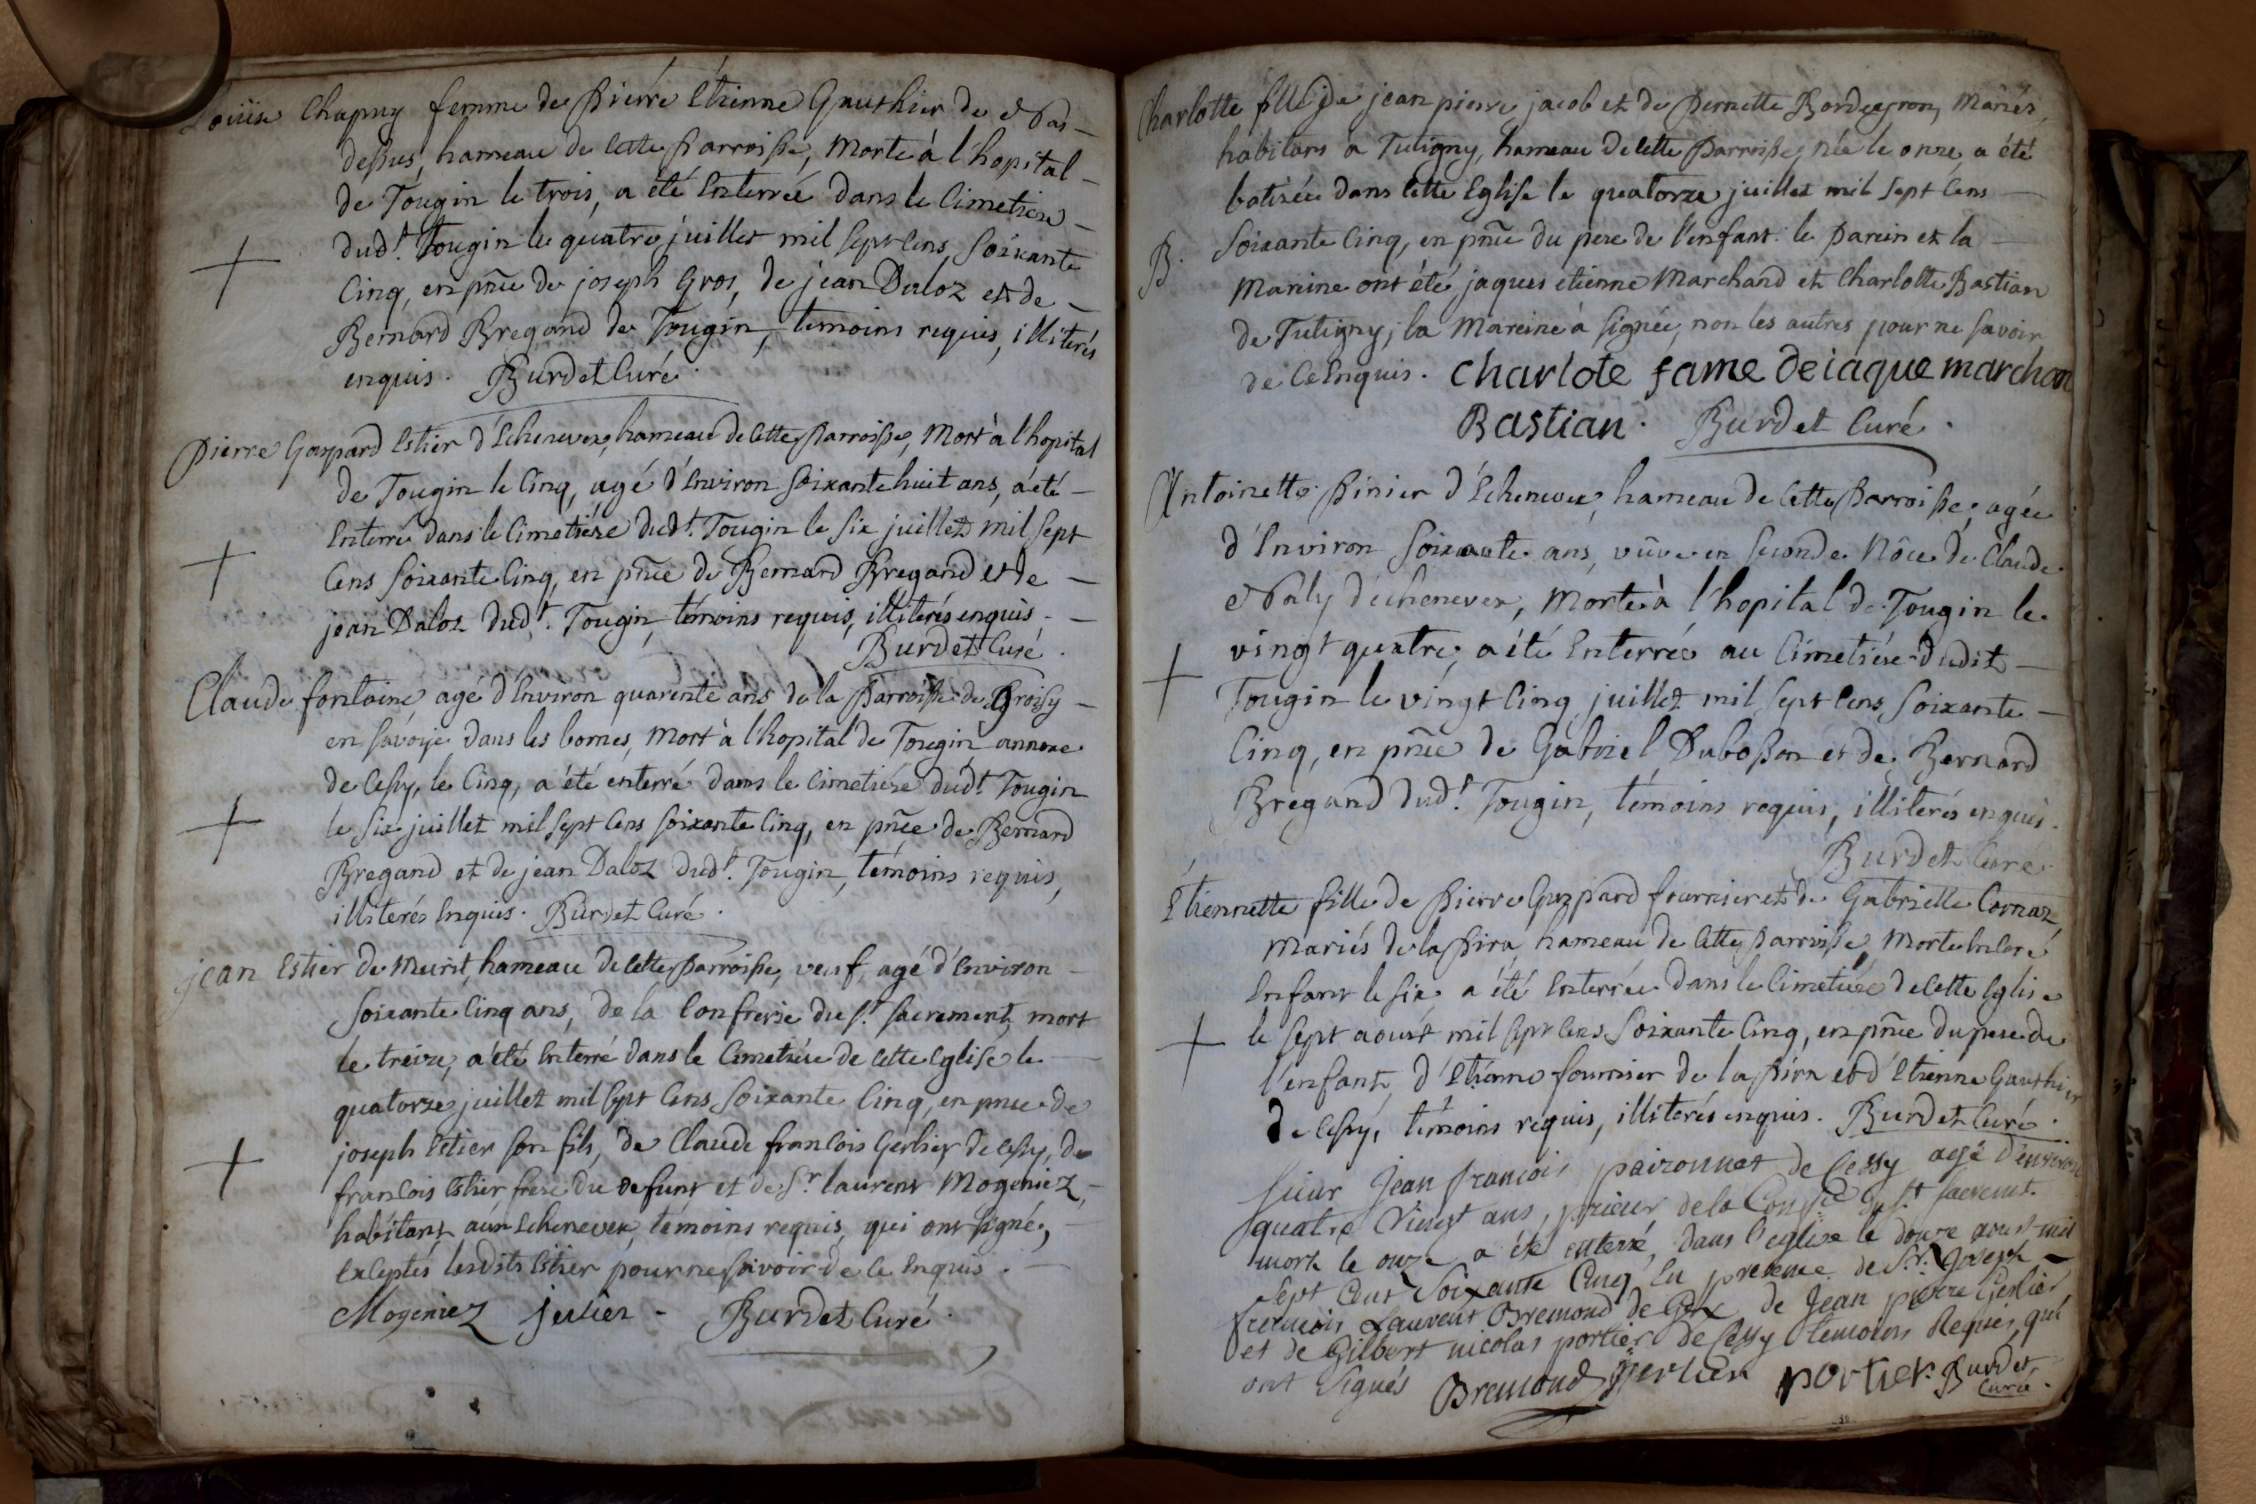 Louïse Chapuy femme de Pierre Etienne Gauthier de Nas-
dessus, hameau de cette Parroisse, Morte à l'hopital
de Tougin le trois, a été Enterrée dans le Cimetiere
dud.t Tougin le quatre juillet mil sept Cens Soixante
Cinq, en pñce de joseph Gros, de jean Daloz et de
Bernard Bregand de Tougin, témoins requis, illiterés
enquis. Burdet Curé.
Pierre Gaspard Estier d'Echenevex, hameau de cette Parroisse, Mort à l'hopital
de Tougin le Cinq, agé d'Environ Soixante huit ans, a été
Enterré dans le Cimetiére dud.t Tougin le Six juillet mil Sept
Cens Soixante Cinq, en pñce de Bernard Bregand et de
jean Daloz dud.t Tougin, témoins requis, illiterés enquis.
Burdet Curé.
Claude fontaine agé d'Environ quarente ans de la Parroisse de Groisy
en Savoÿe dans les bornes, Mort à l'hopital de Tougin annexe
de Cessy, le Cinq, a été enterré dans le Cimetiére dud.t Tougin
le Six juillet mil Sept Cens Soixante Cinq, en pñce de Bernard
Bregand et de jean Daloz dud.t Tougin, témoins requis,
illiterés Enquis. Burdet Curé.
jean Estier de Meurit, hameau de cette Parroisse, veuf, agé d'Environ
Soixante Cinq ans, de la Confrerie du S.t Sacrement, mort
le treize, a été Enterré dans le Cimetiére de cette Eglise le
quatorze juillet mil Sept Cens Soixante Cinq, en pnce de
joseph Estier son fils, de Claude francois Gerlier de Cessy, de
francois Estier frere du defunt et de S.r laurent Mogeniez,
habitant aud Echenevex, témoins requis, qui ont signé,
Exceptés lesdits Estier pour ne Savoir de ce Enquis.
Mogeniez jerlier - Burdet Curé.
Charlotte fille de jean pierre jacob et de Pernette Bordegron, Mariés,
habitans a Tutigny, hameau de cette Parroisse, née le onze, a été
batisée dans cette Eglise le quatorze juillet mil Sept Cens
B. Soixante Cinq, en pñce du pere de l'enfant. le Parein et la
Mareine ont été jaques etienne Marchand et Charlotte Bastian
de Tutigny; la Mareine à Signée, non les autres pour ne Savoir
de ce Enquis. Charlote fame de iaque marchan
Bastian. Burdet Curé.
Antoinette Pinier d'Echenevex, hameau de cette Parroisse, agée
d'Environ Soixante ans, vûve en Seconde Nôce de Claude
Naly d'echenevex, Morte à l'hopital de Tougin le
vingt quatre, a été Enterrée au Cimetiére dudit
Tougin le vingt Cinq juillet mil Sept Cens Soixante
Cinq, en pñce de Gabriel Dubosson et de Bernard
Bregand dud.t Tougin, témoins requis, illiterés enquis.
Burdet Curé.
Etiennette fille de Pierre Gaspard fournier et de Gabrielle Cornaz
Mariés de la Pira, hameau de cette Parroisse, Morte Encore
Enfant le Six, a été Enterrée dans le Cimetiére de cette Eglise
le Sept aoust mil Sept Cens Soixante Cinq, en pñce du pere de
l'enfant, d'Etienne fournier de la Pira et d'Etienne Gauthier
de Cessy, témoins requis, illiterés enquis. Burdet Curé.
Sieur Jean francois paironnet de Cessy agé d'environ
quatre Vingt ans, prieur de la Conf.ie du S.t Sacremt.
mort le onze a été enterré, dans l'eglise le douze aoust mil
Sept Cent Soixante Cinq, En presence de S.r Joseph
francois Laurent Bremond de Gex de Jean pierre Gerlier
et de Gilbert nicolas portier de Cessy temoins Requis, qui
ont Signés Bremond jerlier portier. Burdet
Curé.